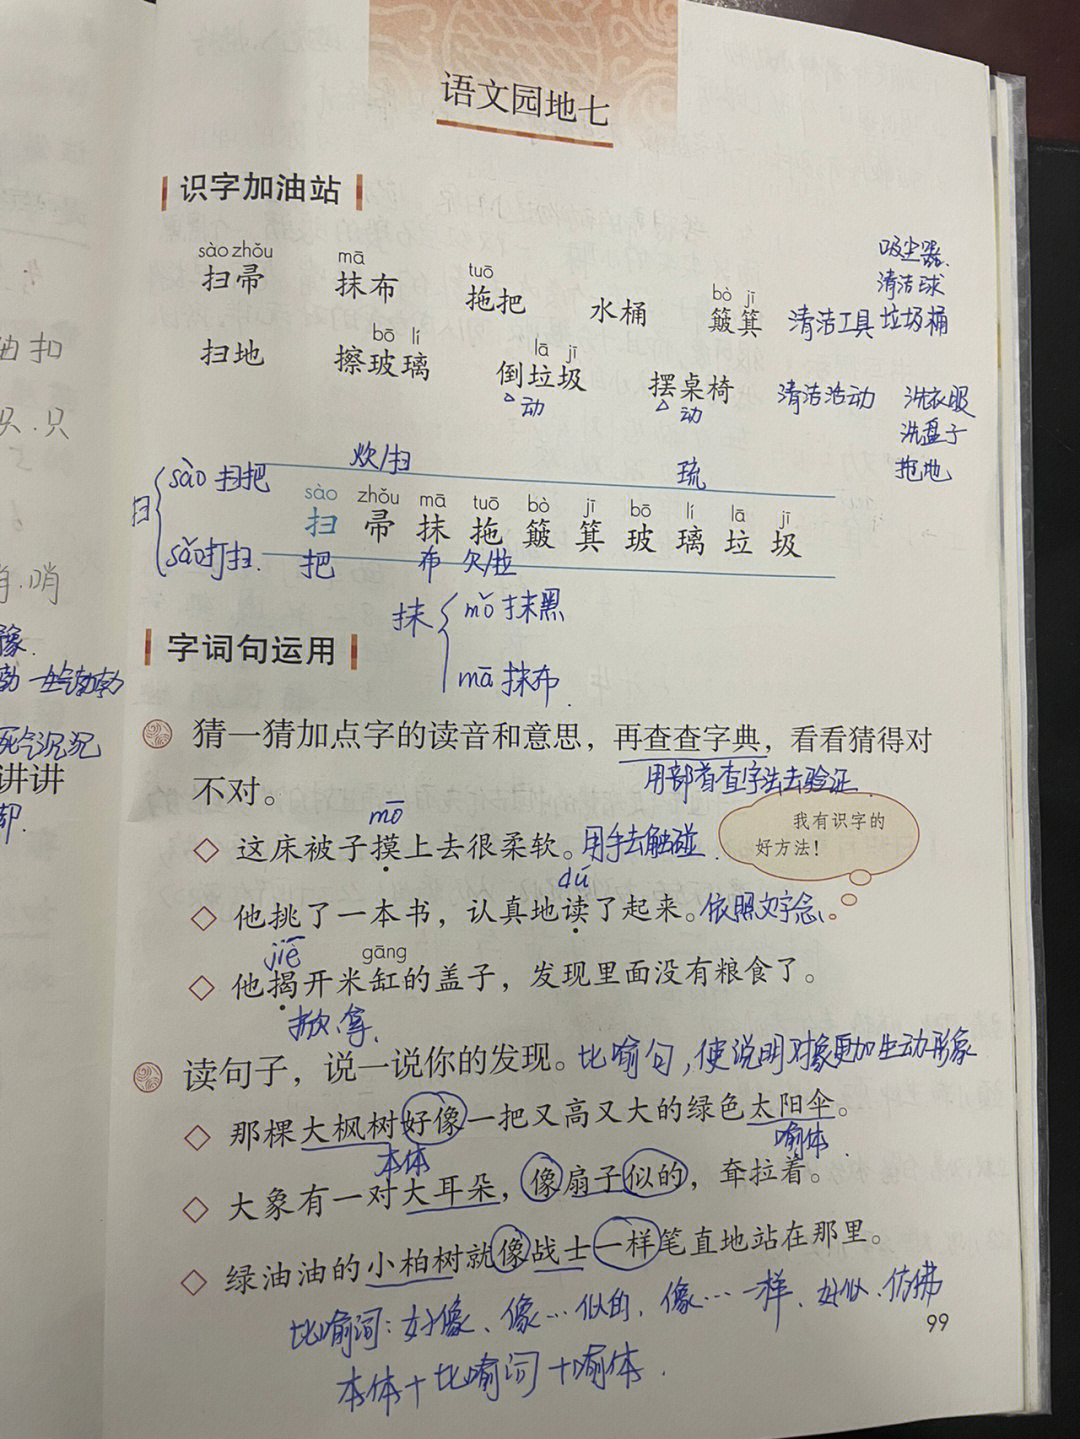 语文园地七
识字加油站
sào zhǒu mā tuō bò jī
扫帚 抹布 拖把 水桶 簸箕 清洁工具
吸尘器
清洁球
垃圾桶
bō lí lā jī
扫地 擦玻璃 倒垃圾 摆桌椅 清洁活动
动 动
洗衣服
洗盘子
拖地
扫 sào 扫把
sǎo 打扫
sào zhǒu mā tuō bò jī bō lí lā jī
扫 帚 抹 拖 簸 箕 玻 璃 垃 圾
琉
把 布
抹 mǒ 抹黑
mā 抹布
字词句运用
猜一猜加点字的读音和意思，再查查字典，看看猜得对
用部首查字法去验证
不对。
我有识字的
好方法！
mō
这床被子摸上去很柔软。用手去触碰
dú
他挑了一本书，认真地读了起来。依照文字念
jiē gāng
他揭开米缸的盖子，发现里面没有粮食了。
掀、拿
读句子，说一说你的发现。比喻句，使说明对象更加生动形象
那棵大枫树好像一把又高又大的绿色太阳伞。
本体 喻体
大象有一对大耳朵，像扇子似的，耷拉着。
绿油油的小柏树就像战士一样笔直地站在那里。
比喻词：好像、像…似的、像…一样、好似、仿佛
本体+比喻词+喻体
99
抽 扣
只
哨
勃 生气勃勃
死气沉沉
讲讲